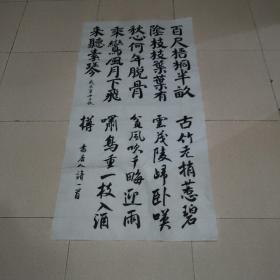 百尺梧桐半畝
陰枝枝葉葉有
秋心何年脱骨
乘鸞鳳月下飛
来聽素琴
古竹老梢惹碧
雲茂陵歸卧嘆
貧風吹千畮迎雨
嘯鳥重一枝入酒
樽 書唐人詩一首